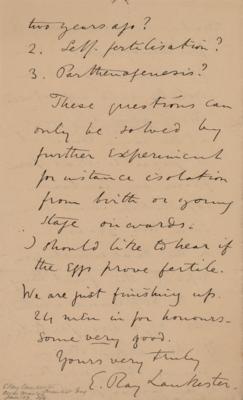 two years ago?
2. Self. fertilisation?
3. Parthenogenesis?
These questions can
only be solved by
further experiment
for instance isolation
from birth or young
stage onwards.
I should like to hear if
the eggs prove fertile.
We are just finishing up.
24 men in for honours -
Some very good.
Yours very truly
E. Ray Lankester.